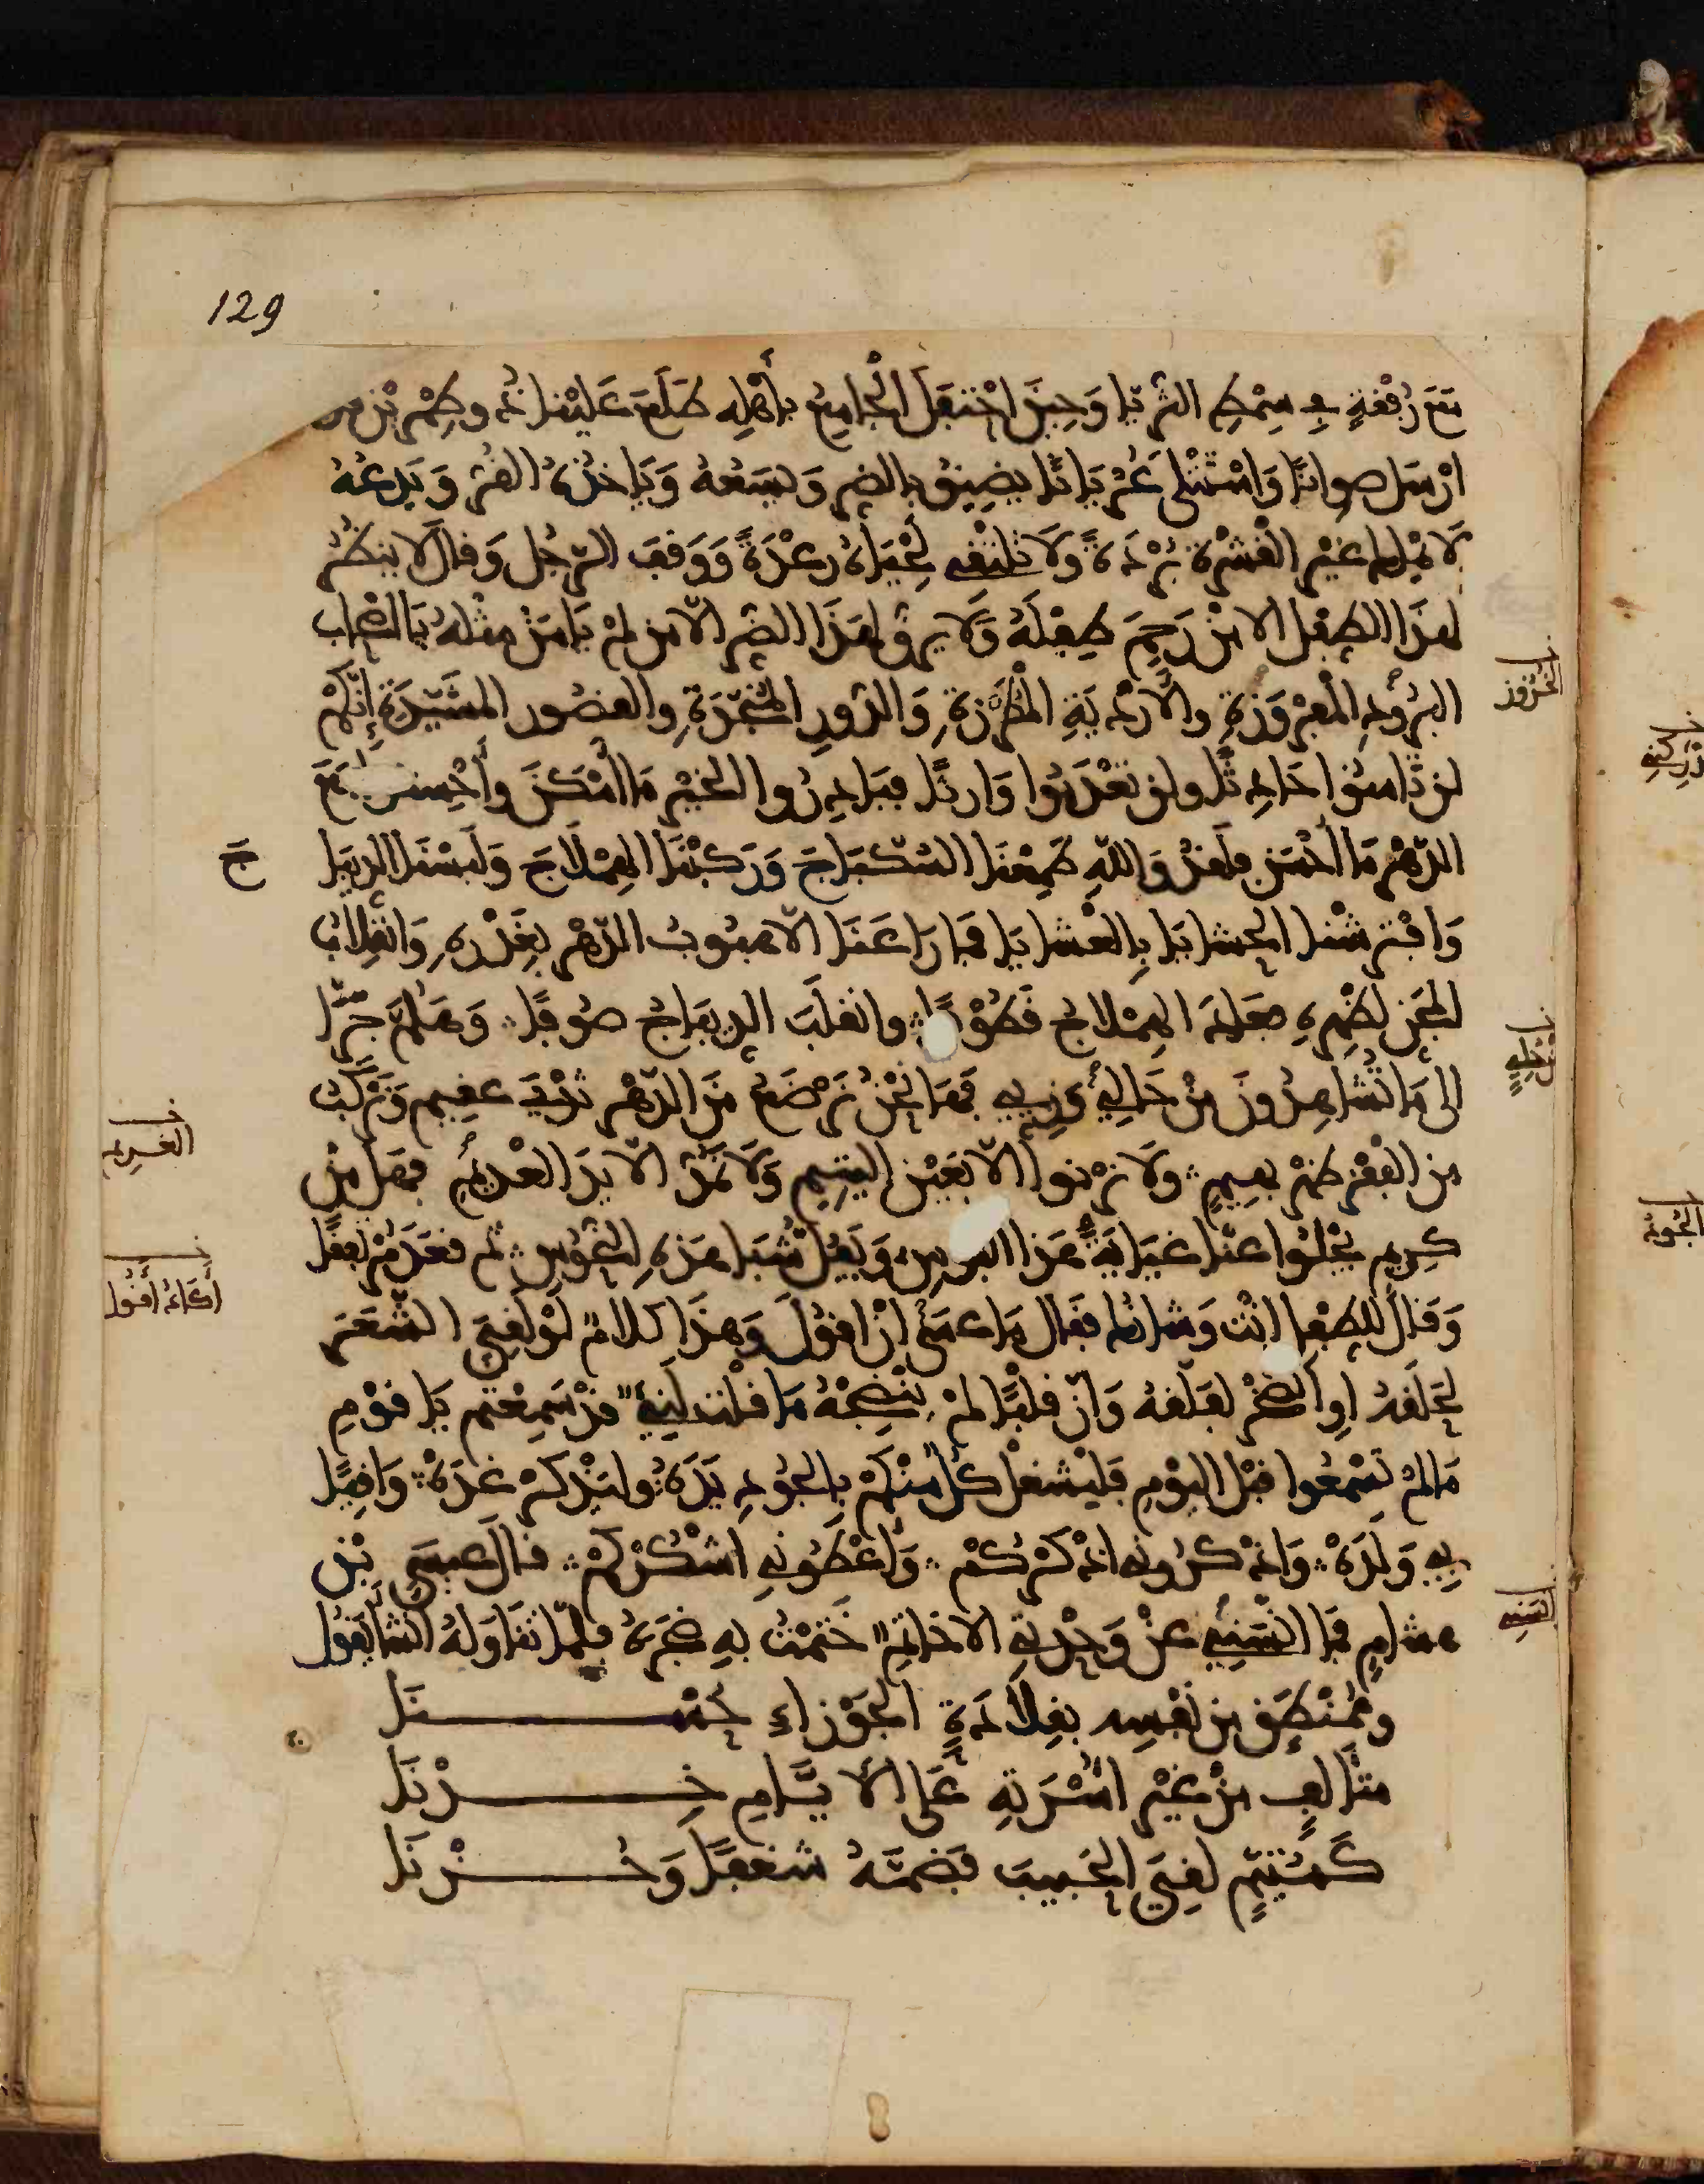 129
مع رفقة في سمط الثريا وحين احتفل الجامع بأهله طلع علينا ذو طمرين
ارسل صوانا واستتلى عريانا يضيق بالضر وسعه وياخذه القر ويدعه
لا يملك غير القشرة بردة ولا تلتقي لحياه رعدة ووقف الرجل وقال لا ينظر
لهذا الطفل الا من رحم طفله ولا يرق لهذا الضر الا من لم يامن مثله يا اصحاب
البرود المفروزة والاردية المطرزة والدور المنجدة والقصور المشيدة إنكم
لن تامنوا حادثا ولن تعدموا وارثا فبادروا الخير ما امكن وأحسنوا مع
الدهر ما أحسن فلقد والله طعمنا السكباج وركبنا الهملاج ولبسنا الديبا
ج
وافترشنا الحشايا بالعشايا فما راعنا الا هبوب الدهر بغدره وانقلاب
المجن لظهره فعاد الهملاج قطوفا وانقلب الديباج صوفا وهلم جرا
الى ما تشاهدون من حالي وزيي فها نحن نرضع من الدهر ثدي عقيم ونركب
من الفقر ظهر بهيم ولا نرنوا الا بعين اليتيم ولا نمد الا يد العديم فهل من
كريم يجلوا عنا غياية هذا البوس ويفل شبا هذه النحوس ثم قعد مرتفقا
وقال للطفل انت وشانك فقال ما عسى ان اقول وهذا كلام لو لقي الشعر
لحلقه او الصخر لفلقه وان قلبا لم ينضجه ما قلت لنيء قد سمعتم يا قوم
ما لم تسمعوا قبل اليوم فليشغل كل منكم بالجود يده وليذكر غده واقيا
بي ولده واذكروني اذكركم واعطوني اشكركم قال عيسى بن
هشام فما انسني عن وحدتي الا خاتم ختمت به خنصره فلما تناوله انشا يقول
وممنطق من نفسه بقلادة الجوزاء حسنا
متالف من غير اسرته على الايام خدنا
كمتيم لقي الحبيب فضمه شغفا وحزنا
الخزوز
الغريم